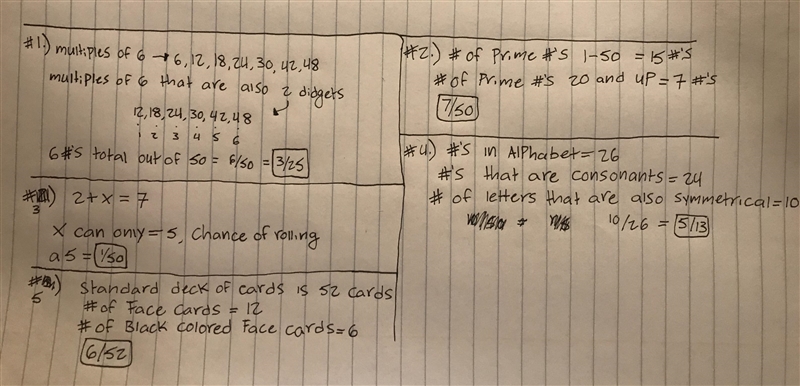 #1.) multiples of 6 → 6, 12, 18, 24, 30, 42, 48
multiples of 6 that are also 2 didgets
12, 18, 24, 30, 42, 48
1 2 3 4 5 6
6 #'s total out of 50 = 6/50 = 3/25
#3) 2 + x = 7
X can only = 5, Chance of rolling
a 5 = 1/50
#5) Standard deck of cards is 52 cards
# of Face cards = 12
# of Black colored Face cards = 6
6/52
#2.) # of Prime #'s 1-50 = 15 #'s
# of Prime #'s 20 and up = 7 #'s
7/50
#4.) #'s in Alphabet = 26
#'s that are consonants = 24
# of letters that are also symmetrical = 10
10/26 = 5/13